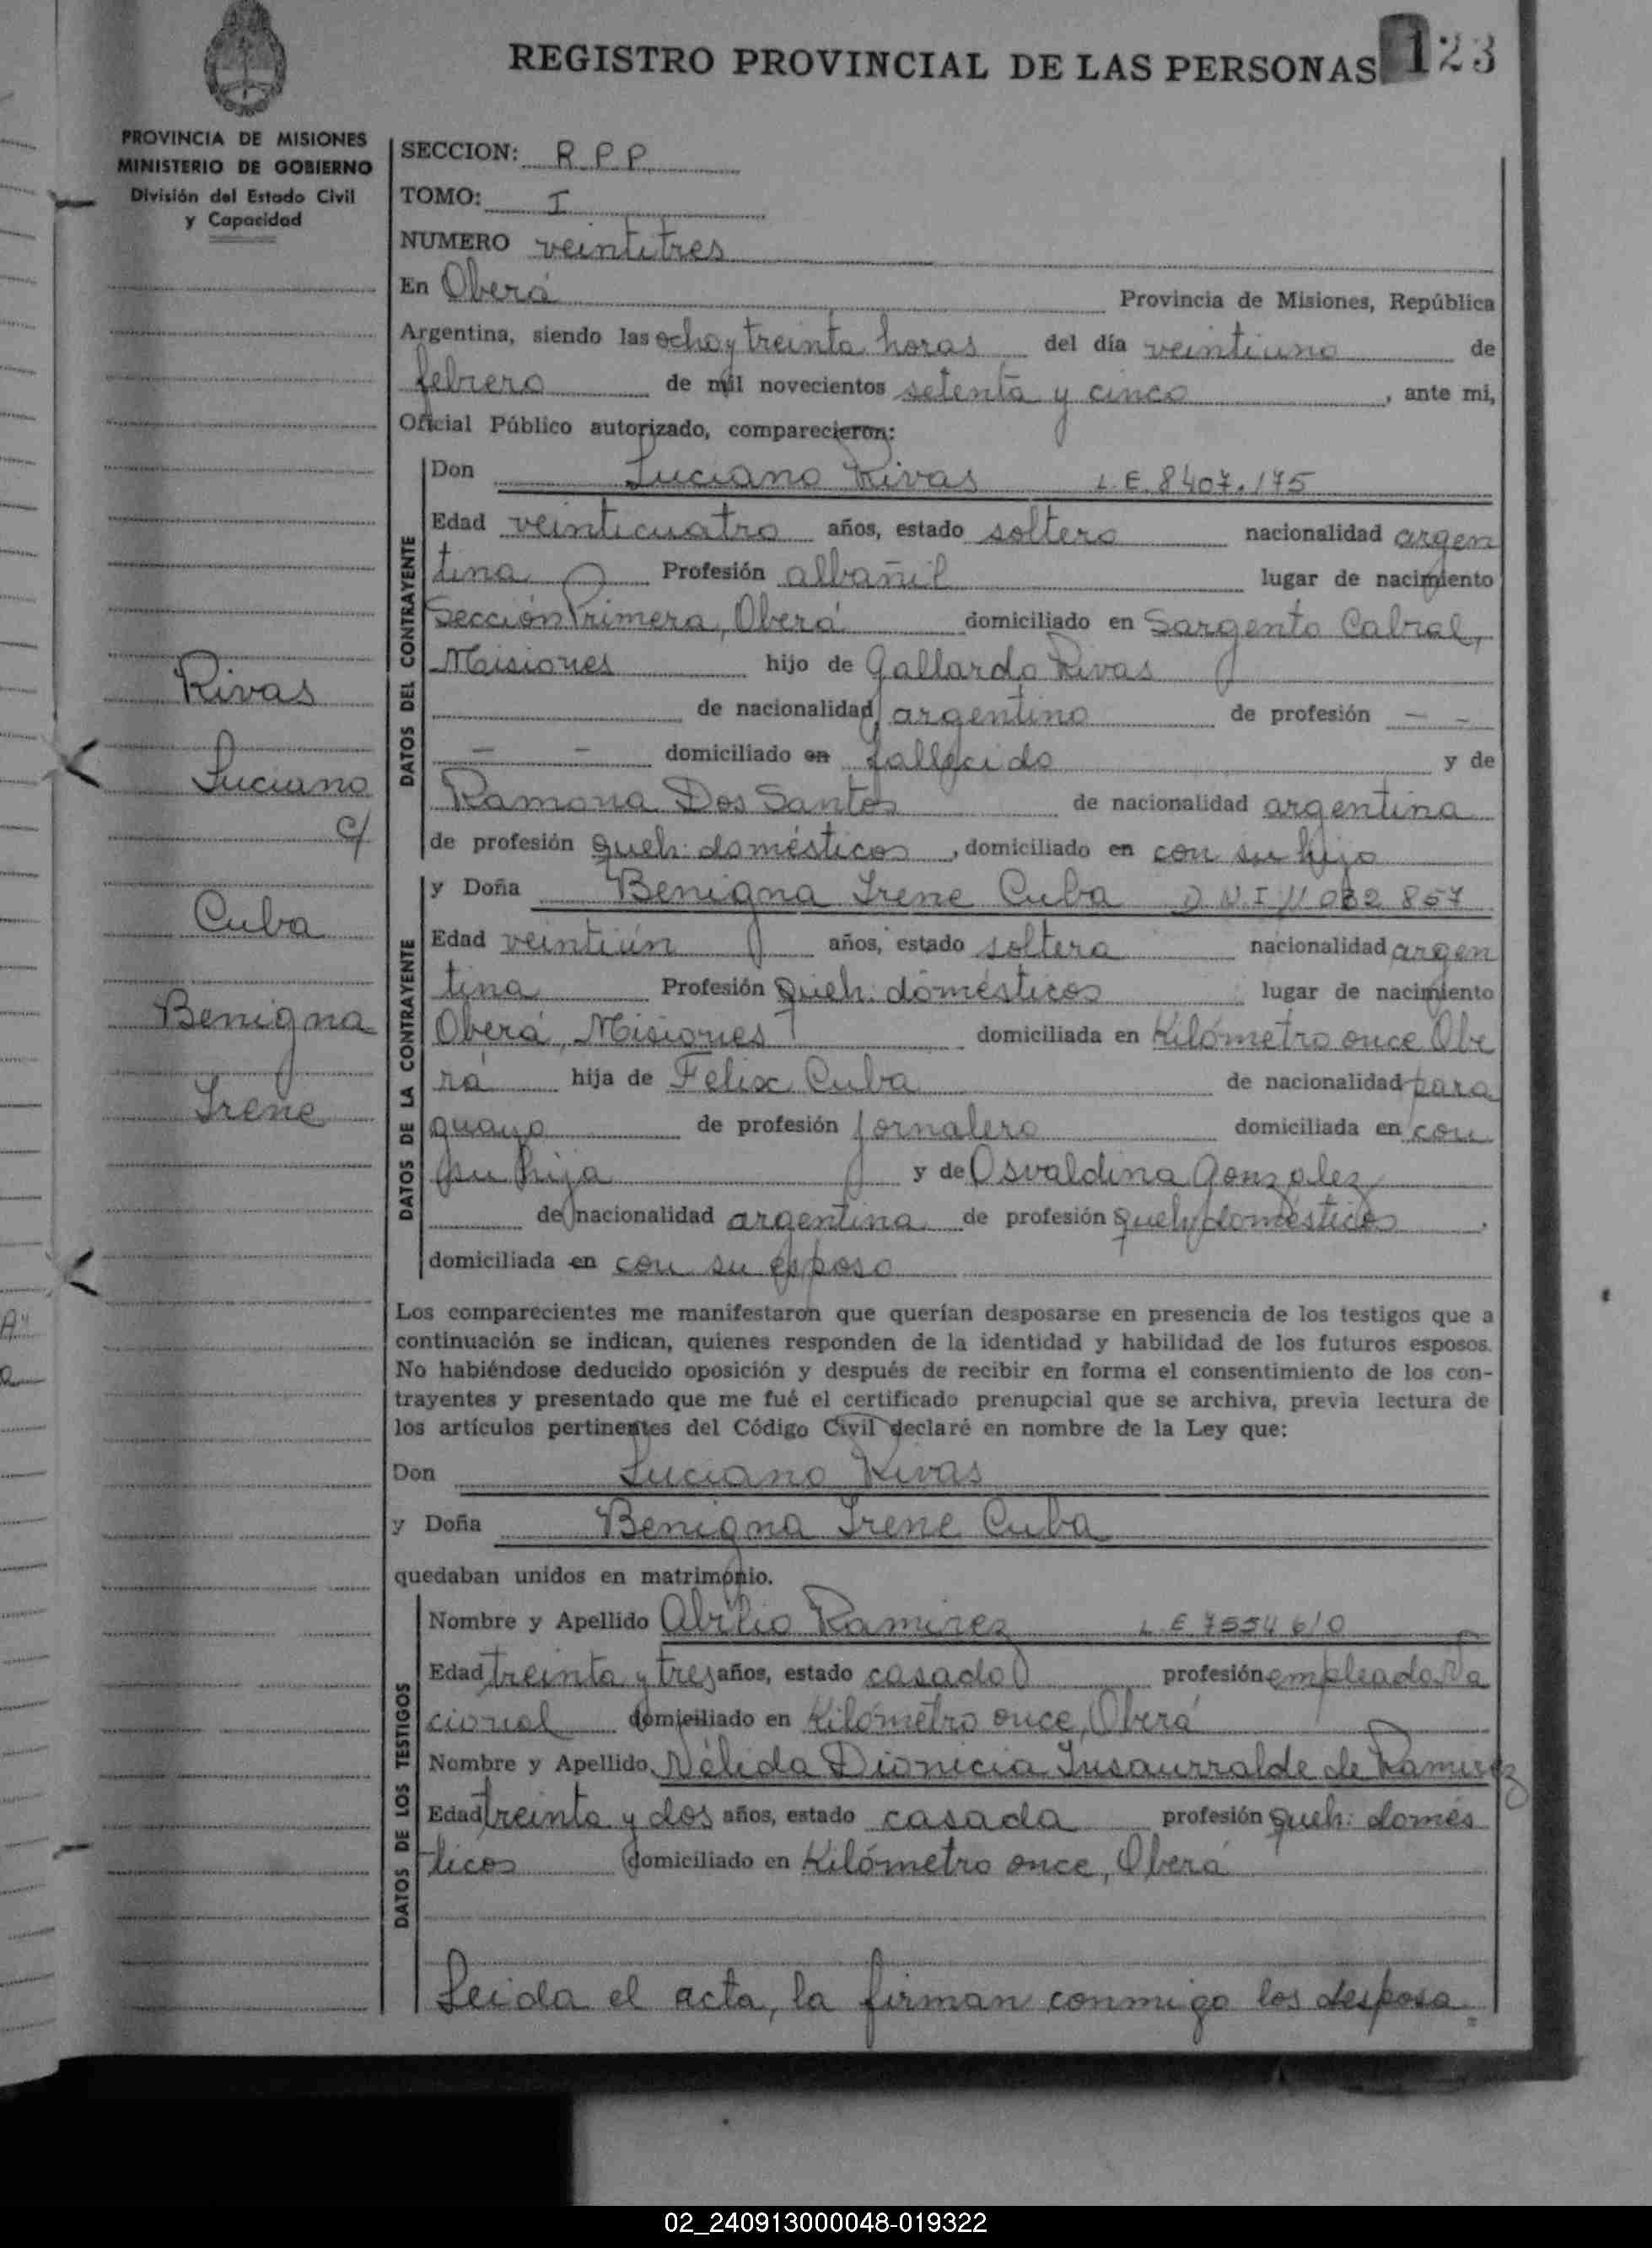 REGISTRO PROVINCIAL DE LAS PERSONAS 123
PROVINCIA DE MISIONES
MINISTERIO DE GOBIERNO
División del Estado Civil
y Capacidad
Rivas
Luciano
c/
Cuba
Benigna
Irene
SECCION: R P P
TOMO: I
NUMERO veintitres
En Oberá Provincia de Misiones, República
Argentina, siendo las ocho y treinta horas del día veintiuno de
febrero de mil novecientos setenta y cinco, ante mi,
Oficial Público autorizado, comparecieron:
DATOS DEL CONTRAYENTE
Don Luciano Rivas L.E. 8407.175
Edad veinticuatro años, estado soltero nacionalidad argen
tina Profesión albañil lugar de nacimiento
Sección Primera, Oberá domiciliado en Sargento Cabral,
Misiones hijo de Gallardo Rivas
de nacionalidad argentino de profesión — —
— — domiciliado en fallecido y de
Ramona Dos Santos de nacionalidad argentina
de profesión queh. domésticos, domiciliado en con su hijo
DATOS DE LA CONTRAYENTE
y Doña Benigna Irene Cuba D.N.I 11 032 857
Edad veintiún años, estado soltera nacionalidad argen
tina Profesión queh. domésticos lugar de nacimiento
Oberá, Misiones domiciliada en Kilómetro once Obe
rá hija de Felix Cuba de nacionalidad para
guayo de profesión jornalero domiciliada en con
su hija y de Osvaldina Gonzalez
de nacionalidad argentina de profesión queh. domésticos.
domiciliada en con su esposo
Los comparecientes me manifestaron que querían desposarse en presencia de los testigos que a
continuación se indican, quienes responden de la identidad y habilidad de los futuros esposos.
No habiéndose deducido oposición y después de recibir en forma el consentimiento de los con-
trayentes y presentado que me fué el certificado prenupcial que se archiva, previa lectura de
los artículos pertinentes del Código Civil declaré en nombre de la Ley que:
Don Luciano Rivas
y Doña Benigna Irene Cuba
quedaban unidos en matrimonio.
DATOS DE LOS TESTIGOS
Nombre y Apellido Abilio Ramirez L.E. 7554610
Edad treinta y tres años, estado casado profesión empleado Na
cional domiciliado en Kilómetro once, Oberá
Nombre y Apellido Nélida Dionicia Insaurralde de Ramirez
Edad treinta y dos años, estado casada profesión queh. domés
ticos domiciliado en Kilómetro once, Oberá
Leida el acta, la firman conmigo los desposa
02_240913000048-019322